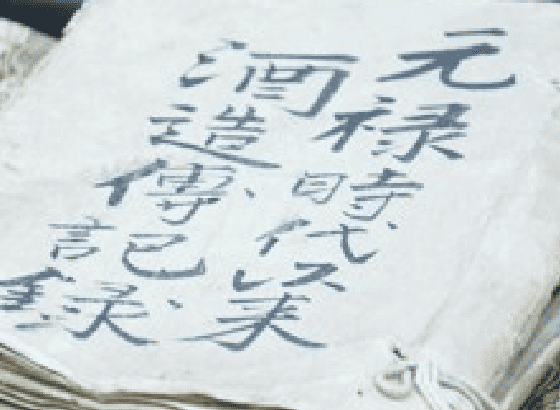 元禄時代以来
酒造傳記録